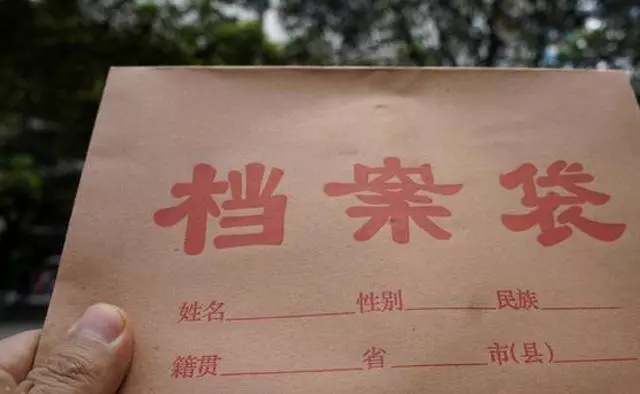 档案袋
姓名__________性别________民族________
籍贯____________省________市(县)________